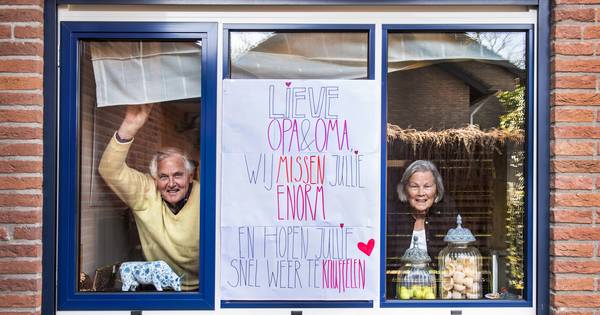 LIEVE
OPA & OMA,
WIJ MISSEN JULLIE
ENORM
EN HOPEN JULLIE
SNEL WEER TE KNUFFELEN